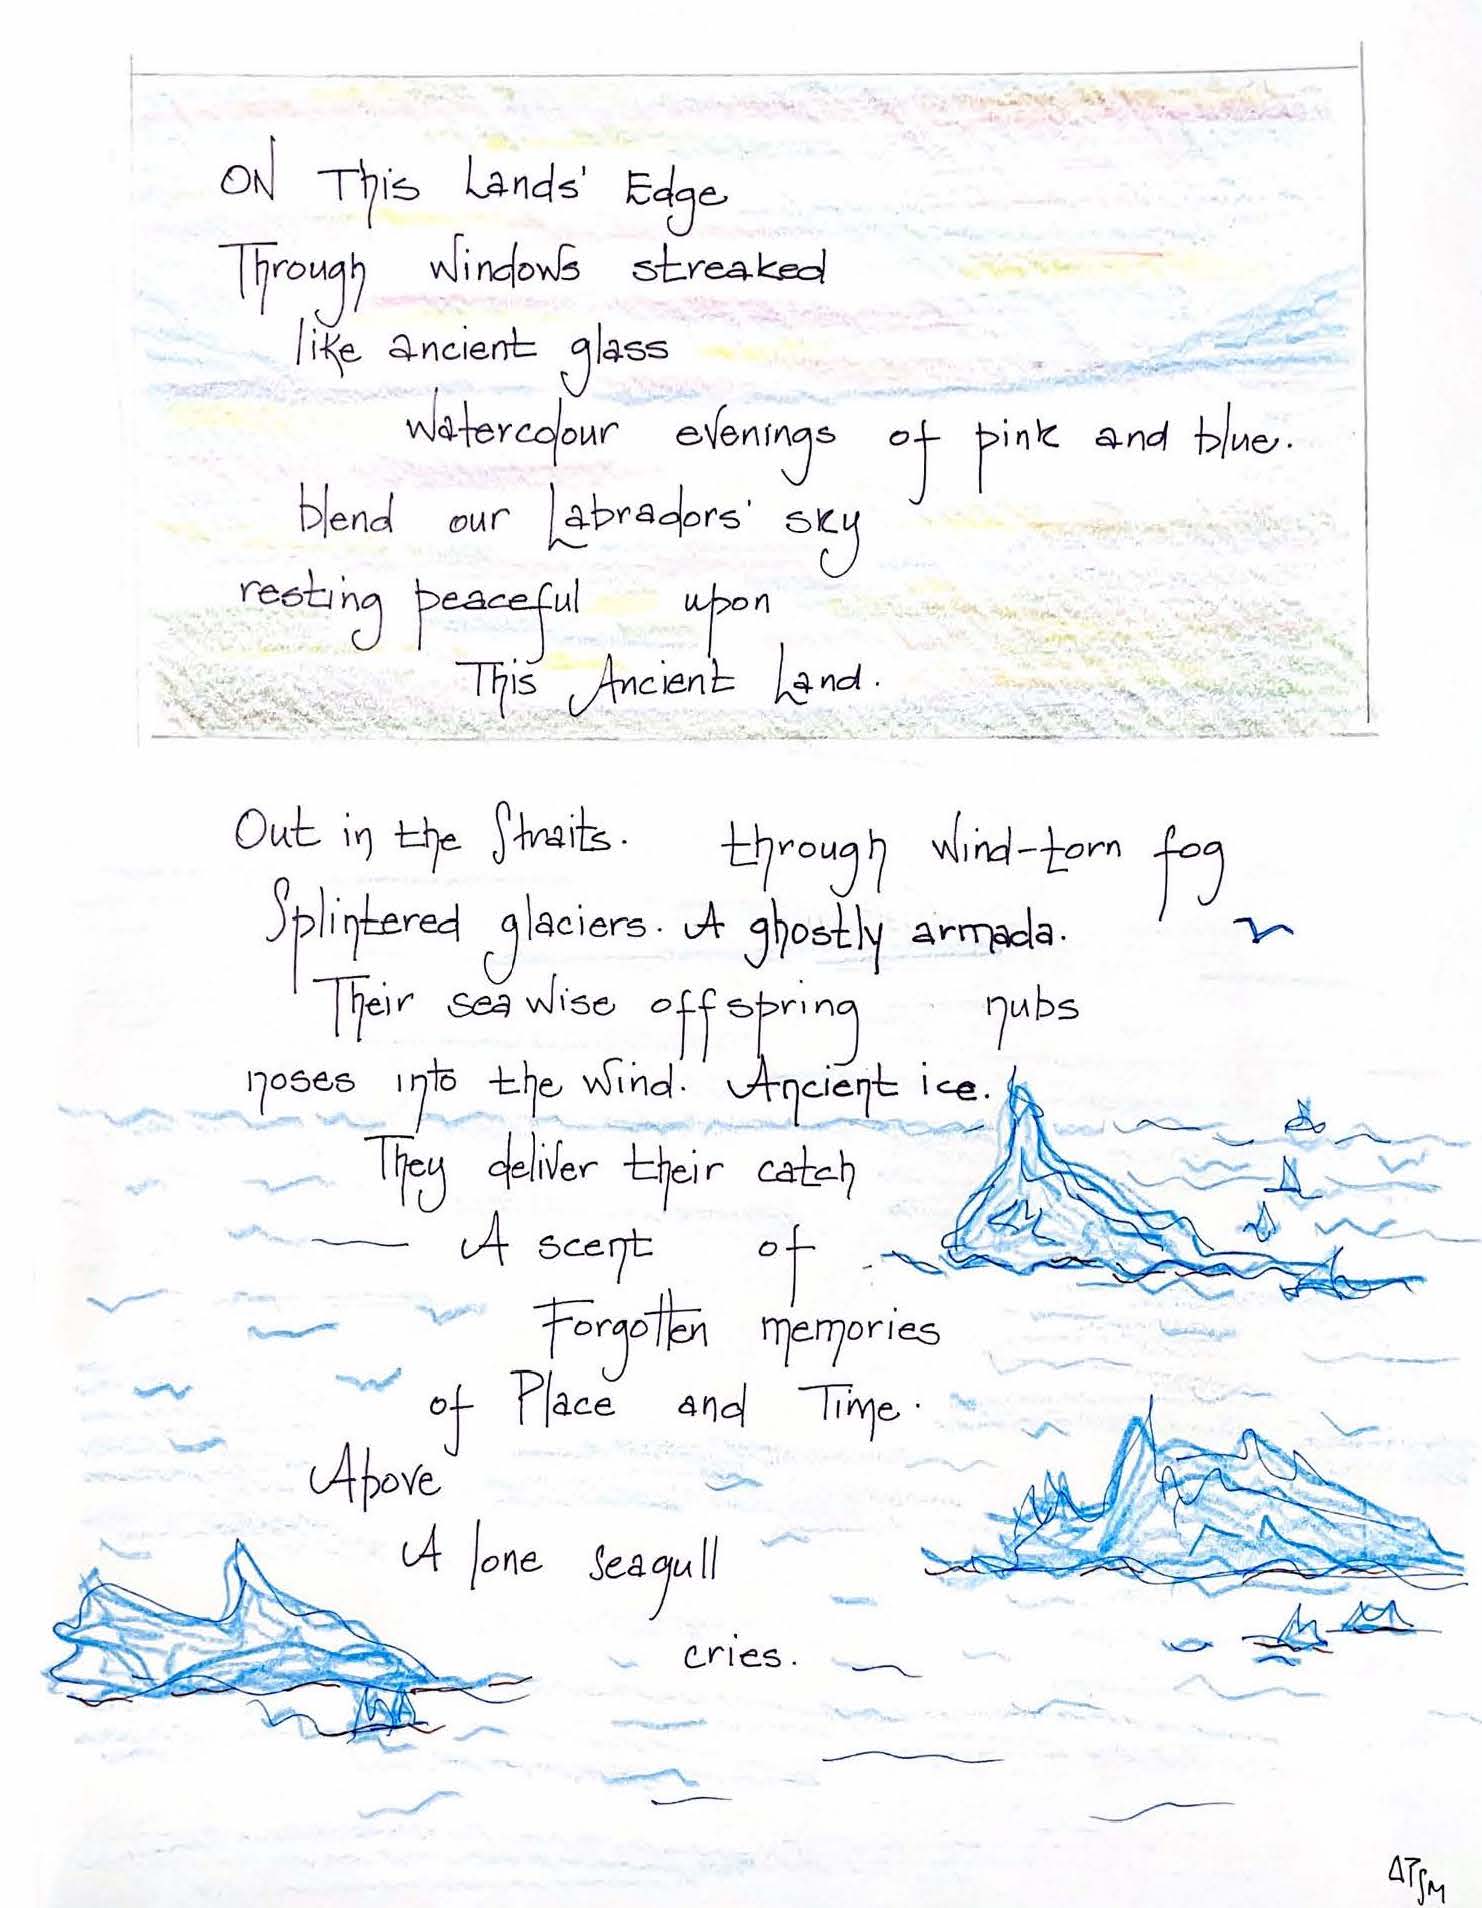 ON This Lands' Edge
Through windows streaked
like ancient glass
watercolour evenings of pink and blue.
blend our Labradors' sky
resting peaceful upon
This Ancient Land.
Out in the Straits. through wind-torn fog
Splintered glaciers. A ghostly armada.
Their sea wise offspring nubs
noses into the wind. Ancient ice.
They deliver their catch
— A scent of
Forgotten memories
of Place and Time.
Above
A lone seagull
cries.